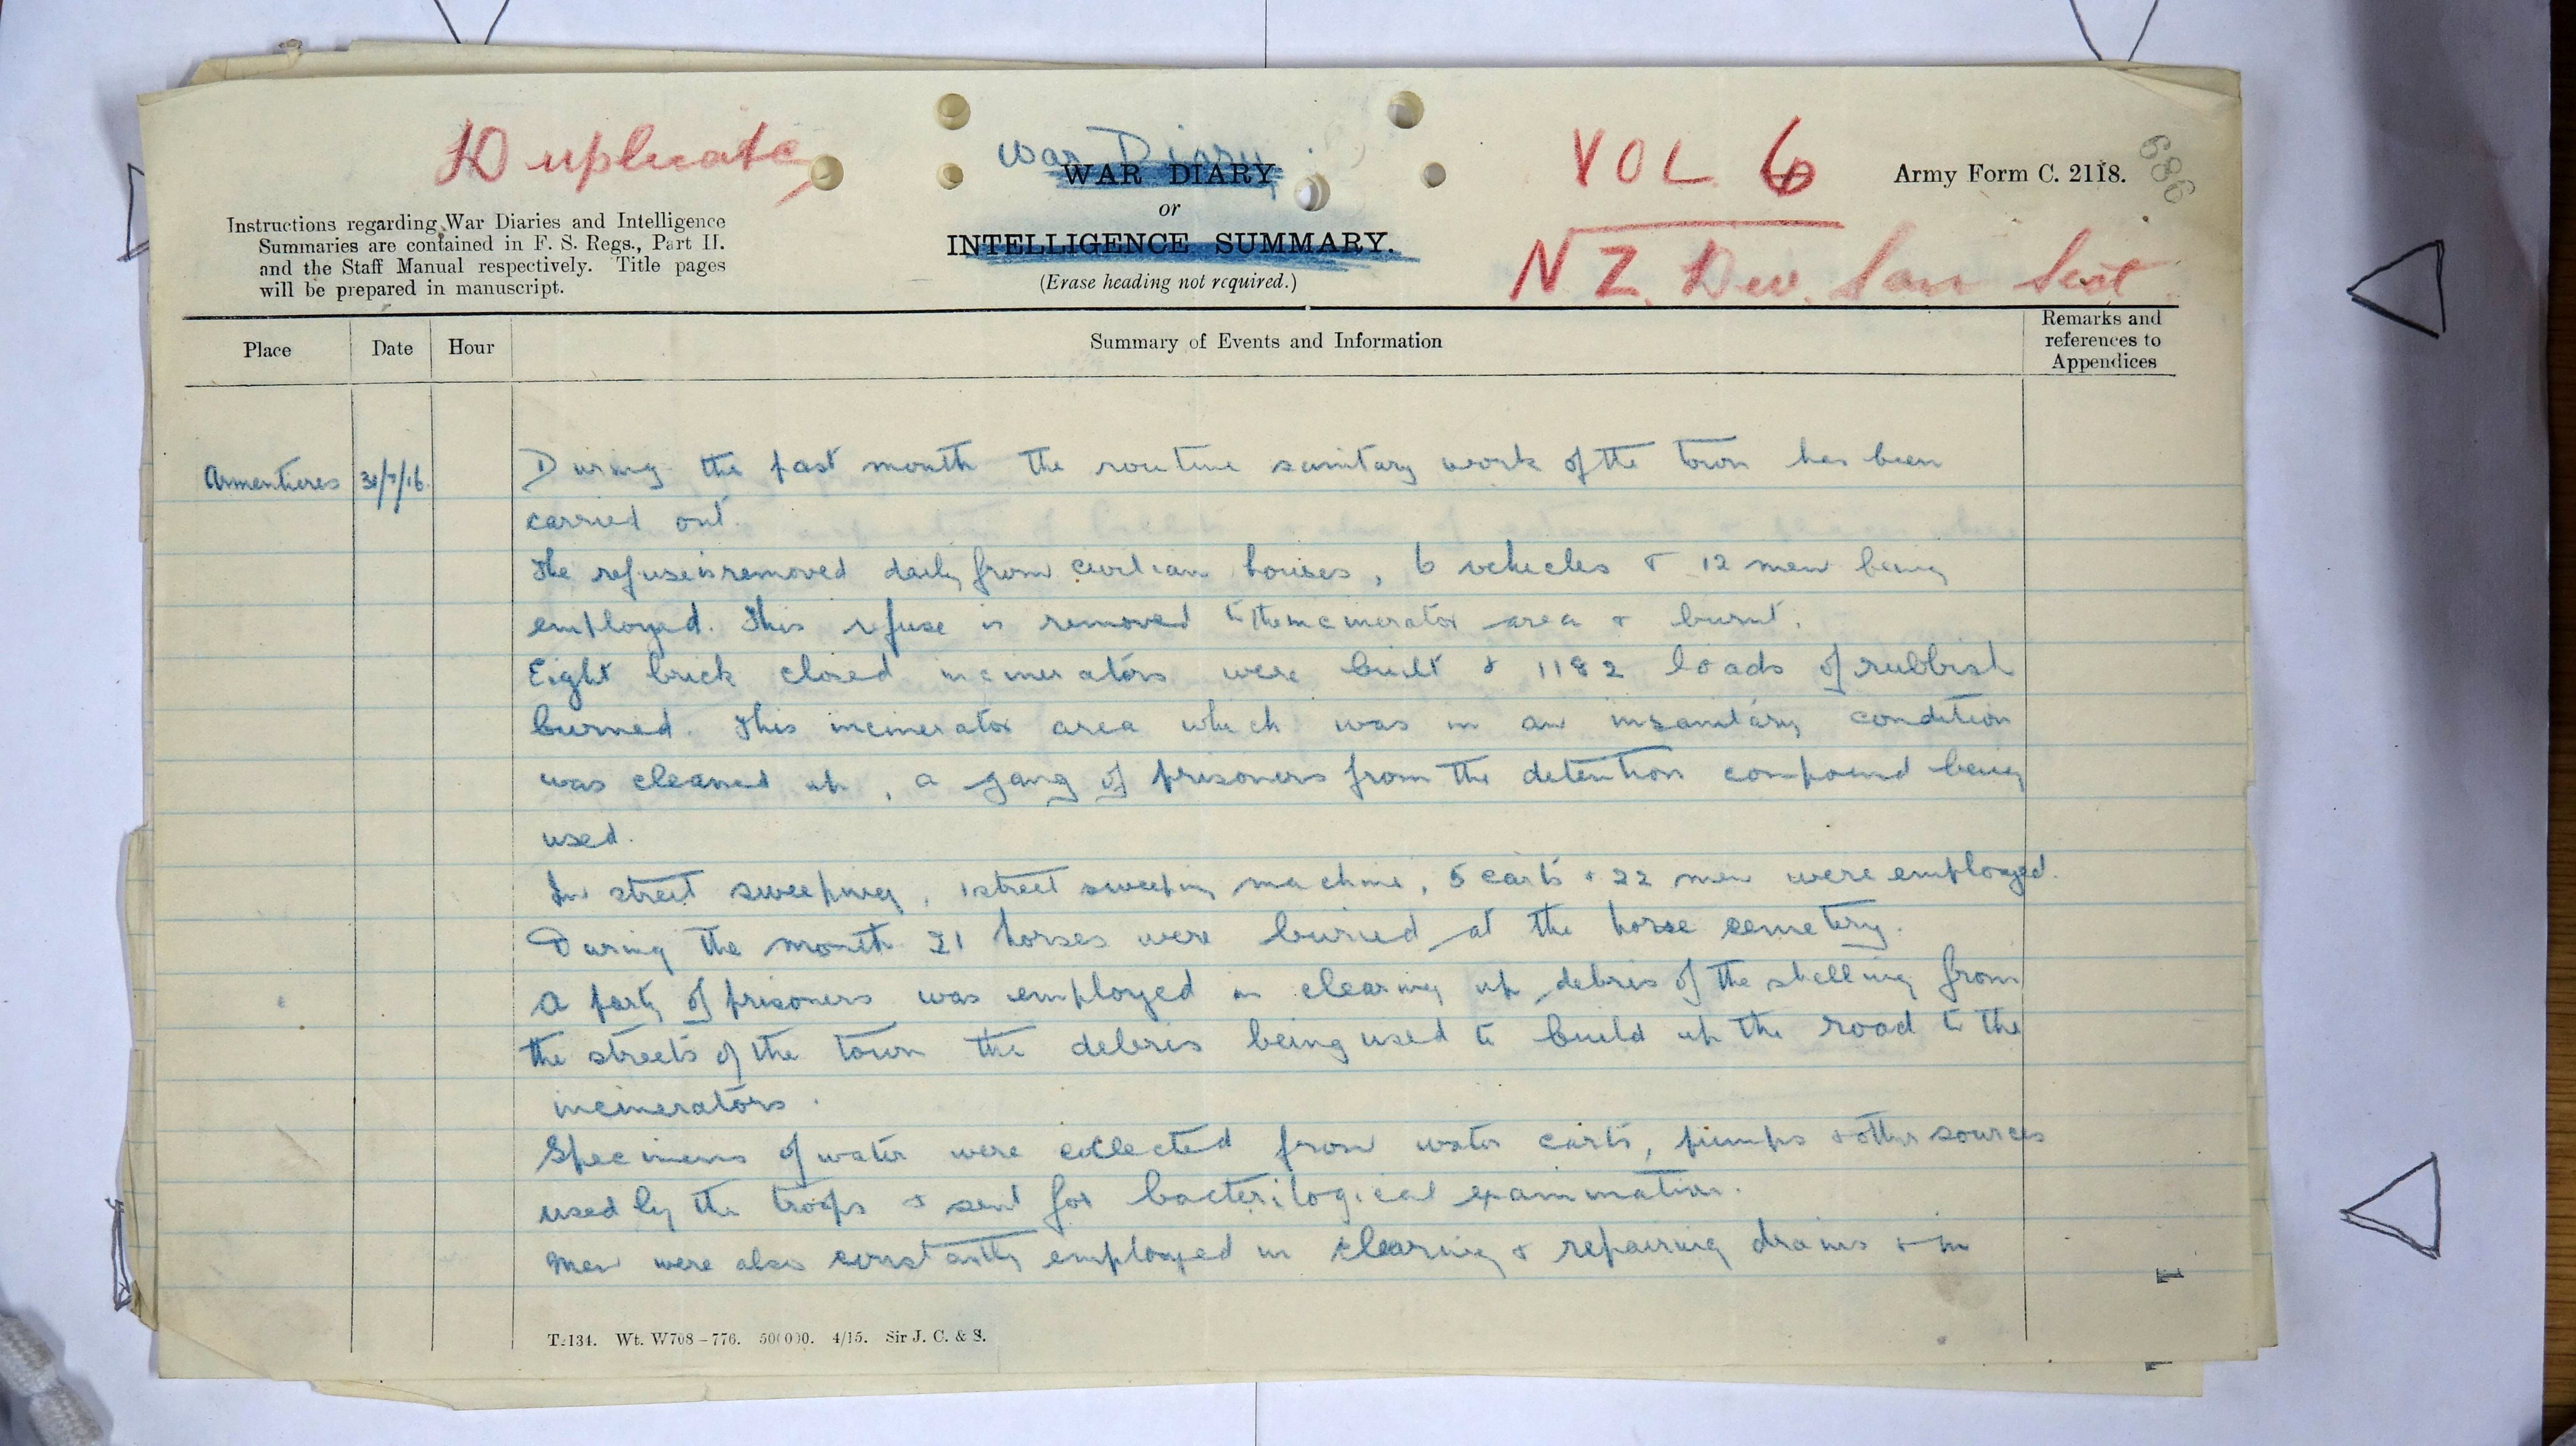 Duplicate
War Diary
WAR DIARY
or
INTELLIGENCE SUMMARY.
(Erase heading not required.)
VOL 6
NZ. Div. San Sect.
Army Form C. 2118.
686
Instructions regarding War Diaries and Intelligence
Summaries are contained in F. S. Regs., Part II.
and the Staff Manual respectively. Title pages
will be prepared in manuscript.
Place
Date
Hour
Summary of Events and Information
Remarks and
references to
Appendices
Armentieres 31/7/16. During the past month the routine sanitary work of the town has been
carried out.
The refuse is removed daily from civilian houses, 6 vehicles & 12 men being
employed. This refuse is removed to the incinerator area & burnt.
Eight brick closed incinerators were built & 1182 loads of rubbish
burned. This incinerator area which was in an insanitary condition
was cleaned up, a gang of prisoners from the detention compound being
used.
In street sweeping, 1 street sweeping machine, 5 carts & 22 men were employed.
During the month 21 horses were buried at the horse cemetery.
A party of prisoners was employed in clearing up debris of the shelling from
the streets of the town the debris being used to build up the road to the
incinerators.
Specimens of water were collected from water carts, pumps & other sources
used by the troops & sent for bacterilogical examination.
Men were also constantly employed in clearing & repairing drains & in
T.134. Wt. W708-776. 500000. 4/15. Sir J. C. & S.
1